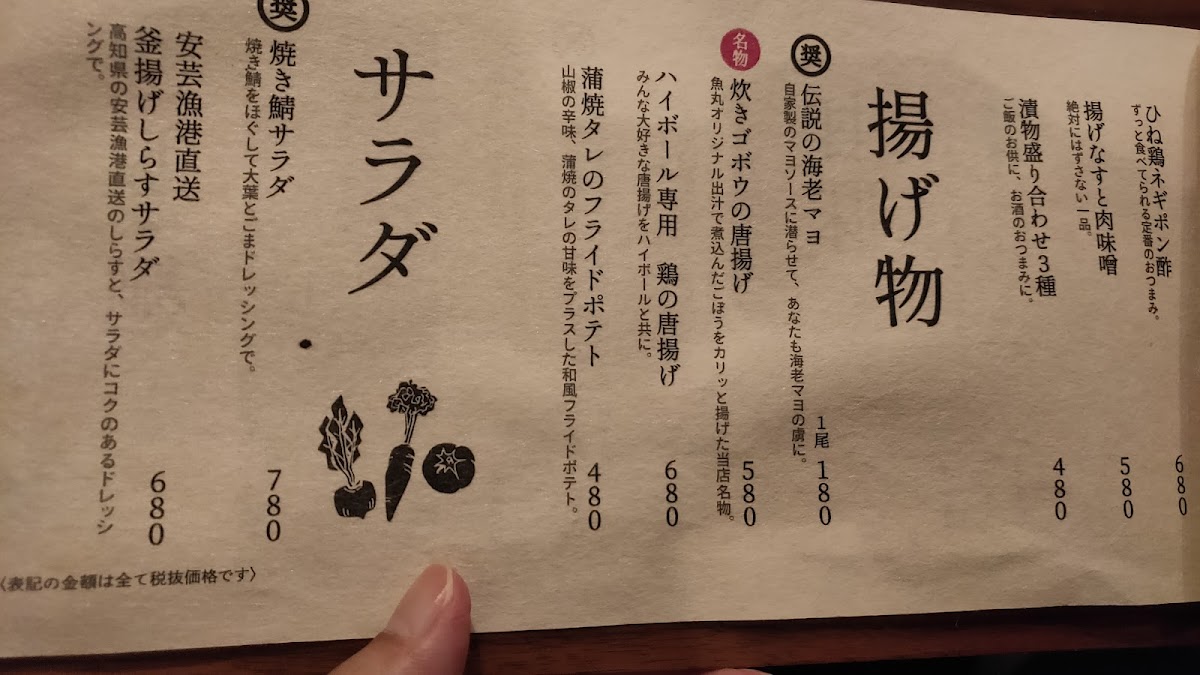 ひね鶏ネギポン酢
ずっと食べてられる定番のおつまみ。
680
揚げなすと肉味噌
絶対にはずさない一品。
580
漬物盛り合わせ3種
ご飯のお供に、お酒のおつまみに。
480
揚げ物
奨
伝説の海老マヨ
1尾 180
自家製のマヨソースに潜らせて、あなたも海老マヨの虜に。
名物
炊きゴボウの唐揚げ
580
魚丸オリジナル出汁で煮込んだごぼうをカリッと揚げた当店名物。
ハイボール専用 鶏の唐揚げ
680
みんな大好きな唐揚げをハイボールと共に。
蒲焼タレのフライドポテト
480
山椒の辛味、蒲焼のタレの甘味をプラスした和風フライドポテト。
サラダ
奨
焼き鯖サラダ
780
焼き鯖をほぐして大葉とごまドレッシングで。
安芸漁港直送
釜揚げしらすサラダ
680
高知県の安芸漁港直送のしらすと、サラダにコクのあるドレッシ
ングで。
〈表記の金額は全て税抜価格です〉